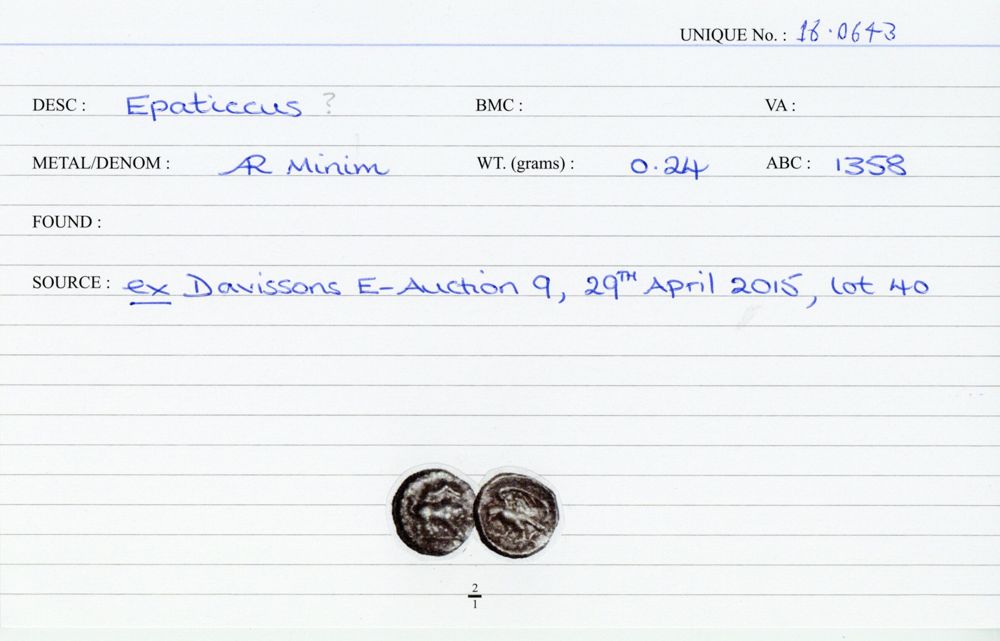 UNIQUE No. : 16.0643
DESC : Epaticcus ? BMC : VA :
METAL/DENOM : AR Minim WT. (grams) : 0.24 ABC : 1358
FOUND :
SOURCE : ex Davissons E-Auction 9, 29TH April 2015, lot 40
2
1